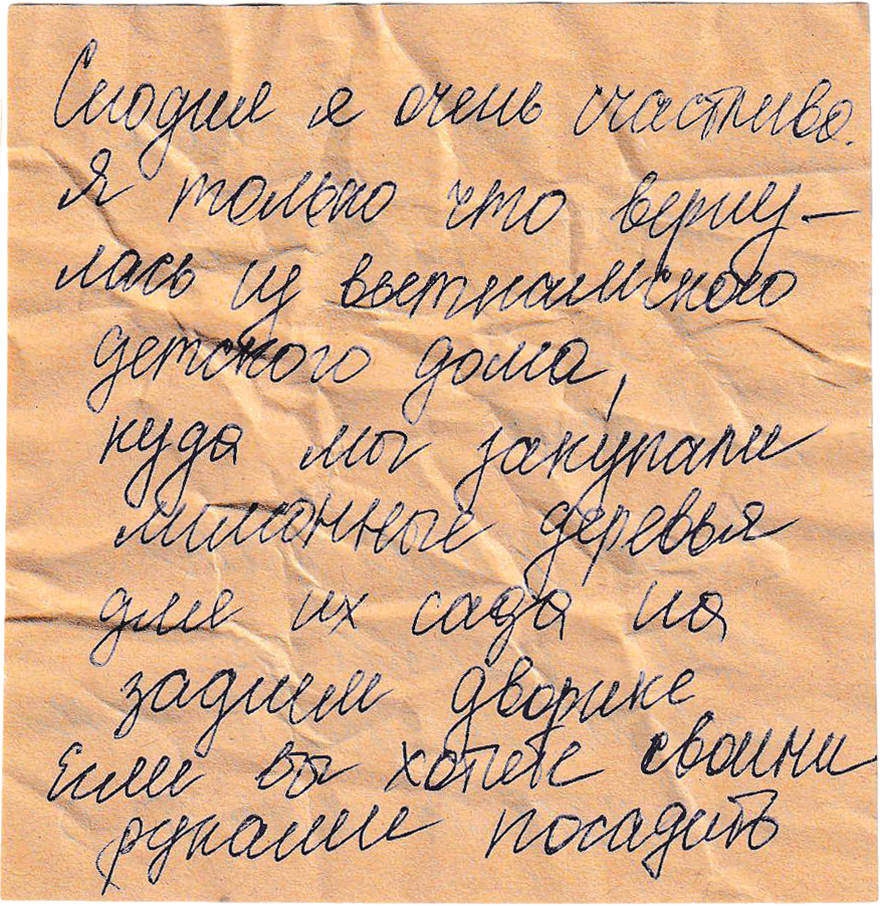 Сегодня я очень счастлива.
Я только что верну-
лась из вьетнамского
детского дома,
куда мы закупали
лимонные деревья
для их сада на
заднем дворике
Если вы хотите своими
руками посадить